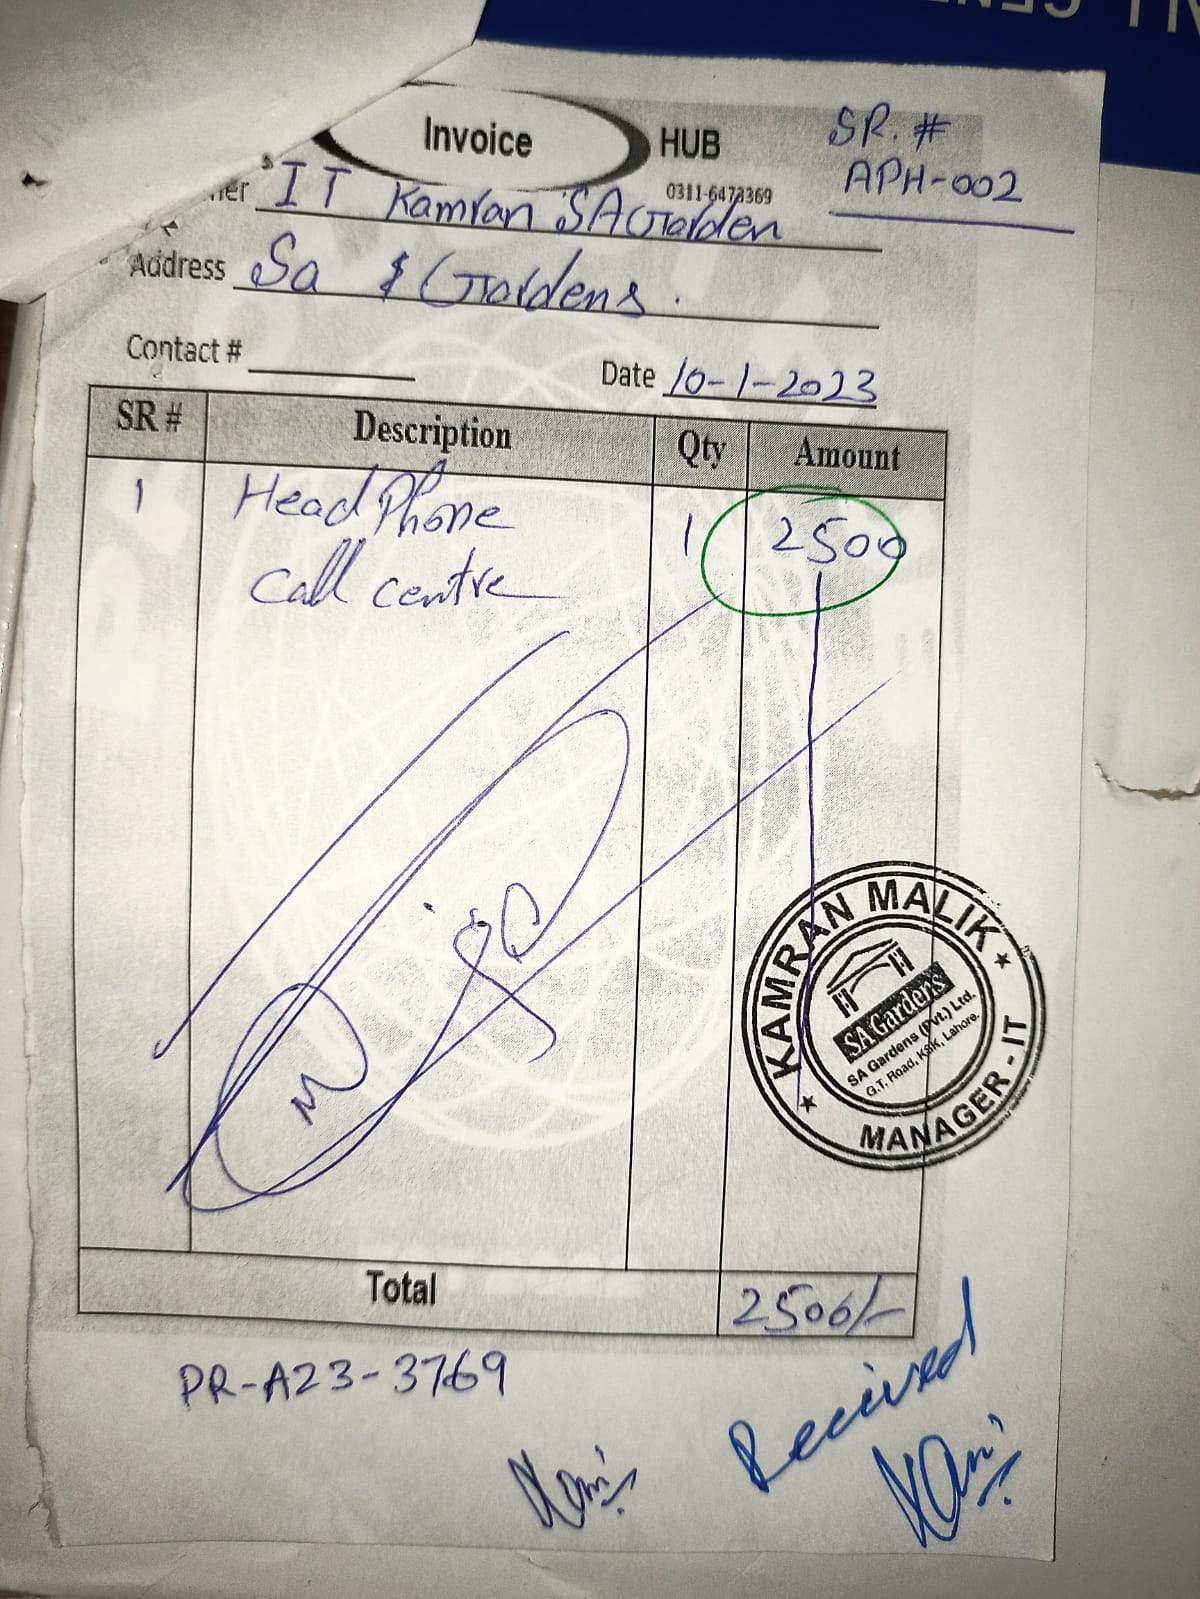 Invoice
HUB
0311-6473369
SR. #
APH-002
IT Kamran SAGarden
Address Sa $ Gardens.
Contact #
Date 10-1-2023
SR # Description Qty Amount
1 Head Phone 1 2500
Call Centre
KAMRAN MALIK
SA Gardens
SA Gardens (Pvt.) Ltd.
G.T. Road, KSK, Lahore.
MANAGER - IT
Total 2500/-
PR-A23-3769
Received